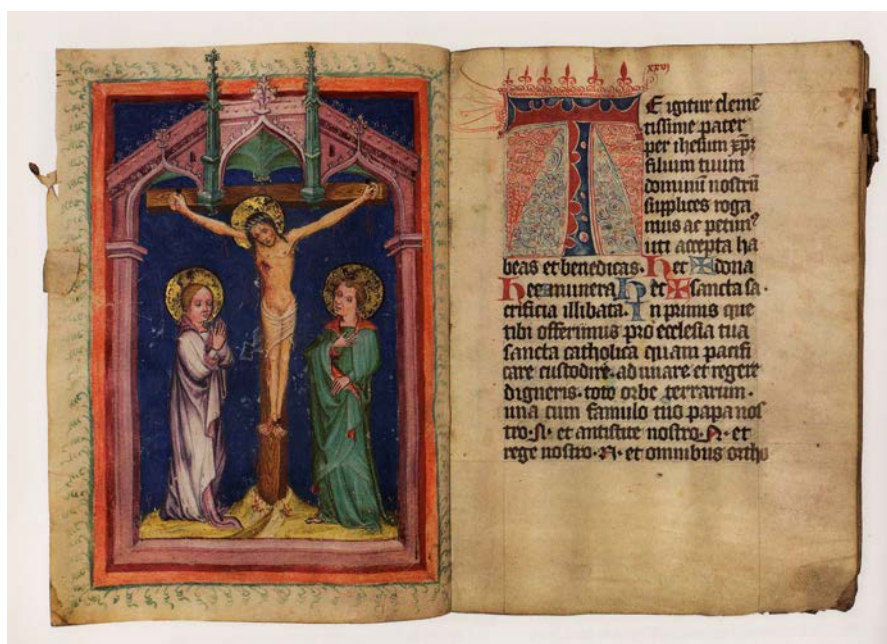 xxvj
TE igitur clemē
tissime pater
per ihesum xp̄z
filium tuum
dominū nostrū
supplices roga
mus ac petim⁹
uti accepta ha
beas et benedicas. hec ✠ dona
hec munera hec ✠ sancta sa
crificia illibata. In primis que
tibi offerimus pro ecclesia tua
sancta catholica quam pacifi
care custodire. adunare et regere
digneris. toto orbe terrarum.
una cum famulo tuo papa nos
tro .N. et antistite nostro .N. et
rege nostro .N. et omnibus ortho